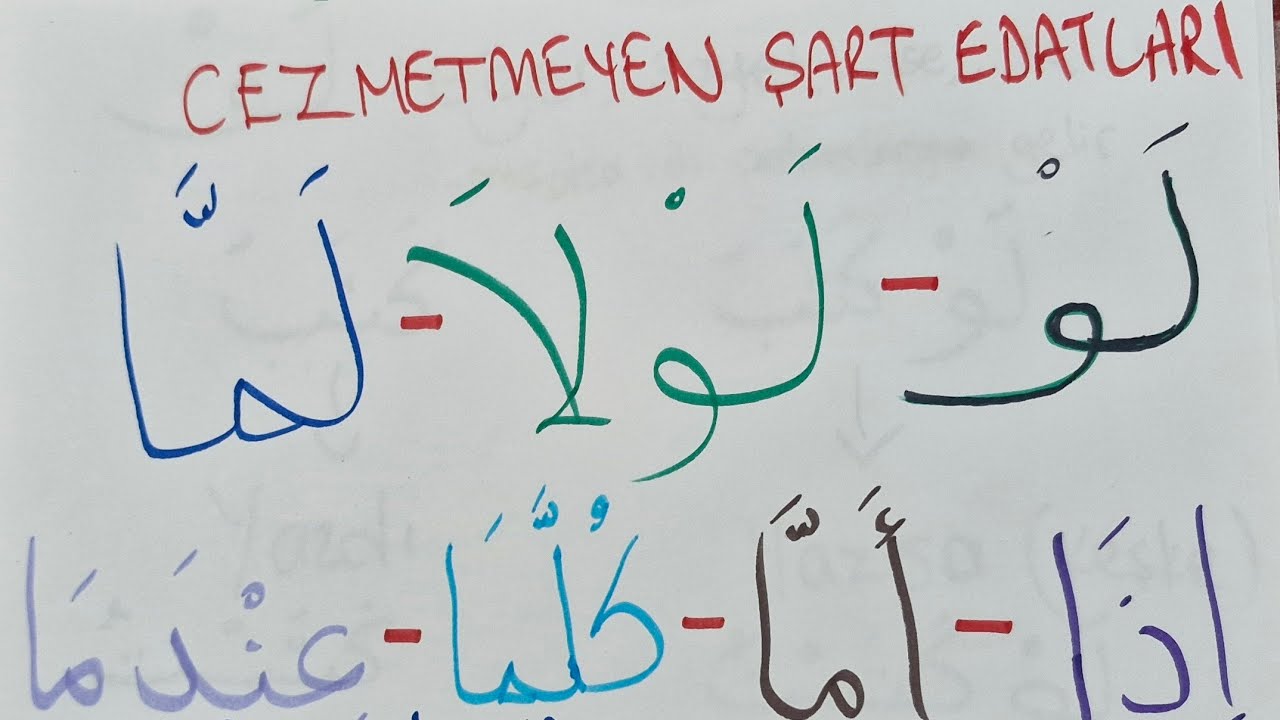 CEZMETMEYEN ŞART EDATLARI
لَوْ - لَوْلَا - لَمَّا
إِذَا - أَمَّا - كُلَّمَا - عِنْدَمَا